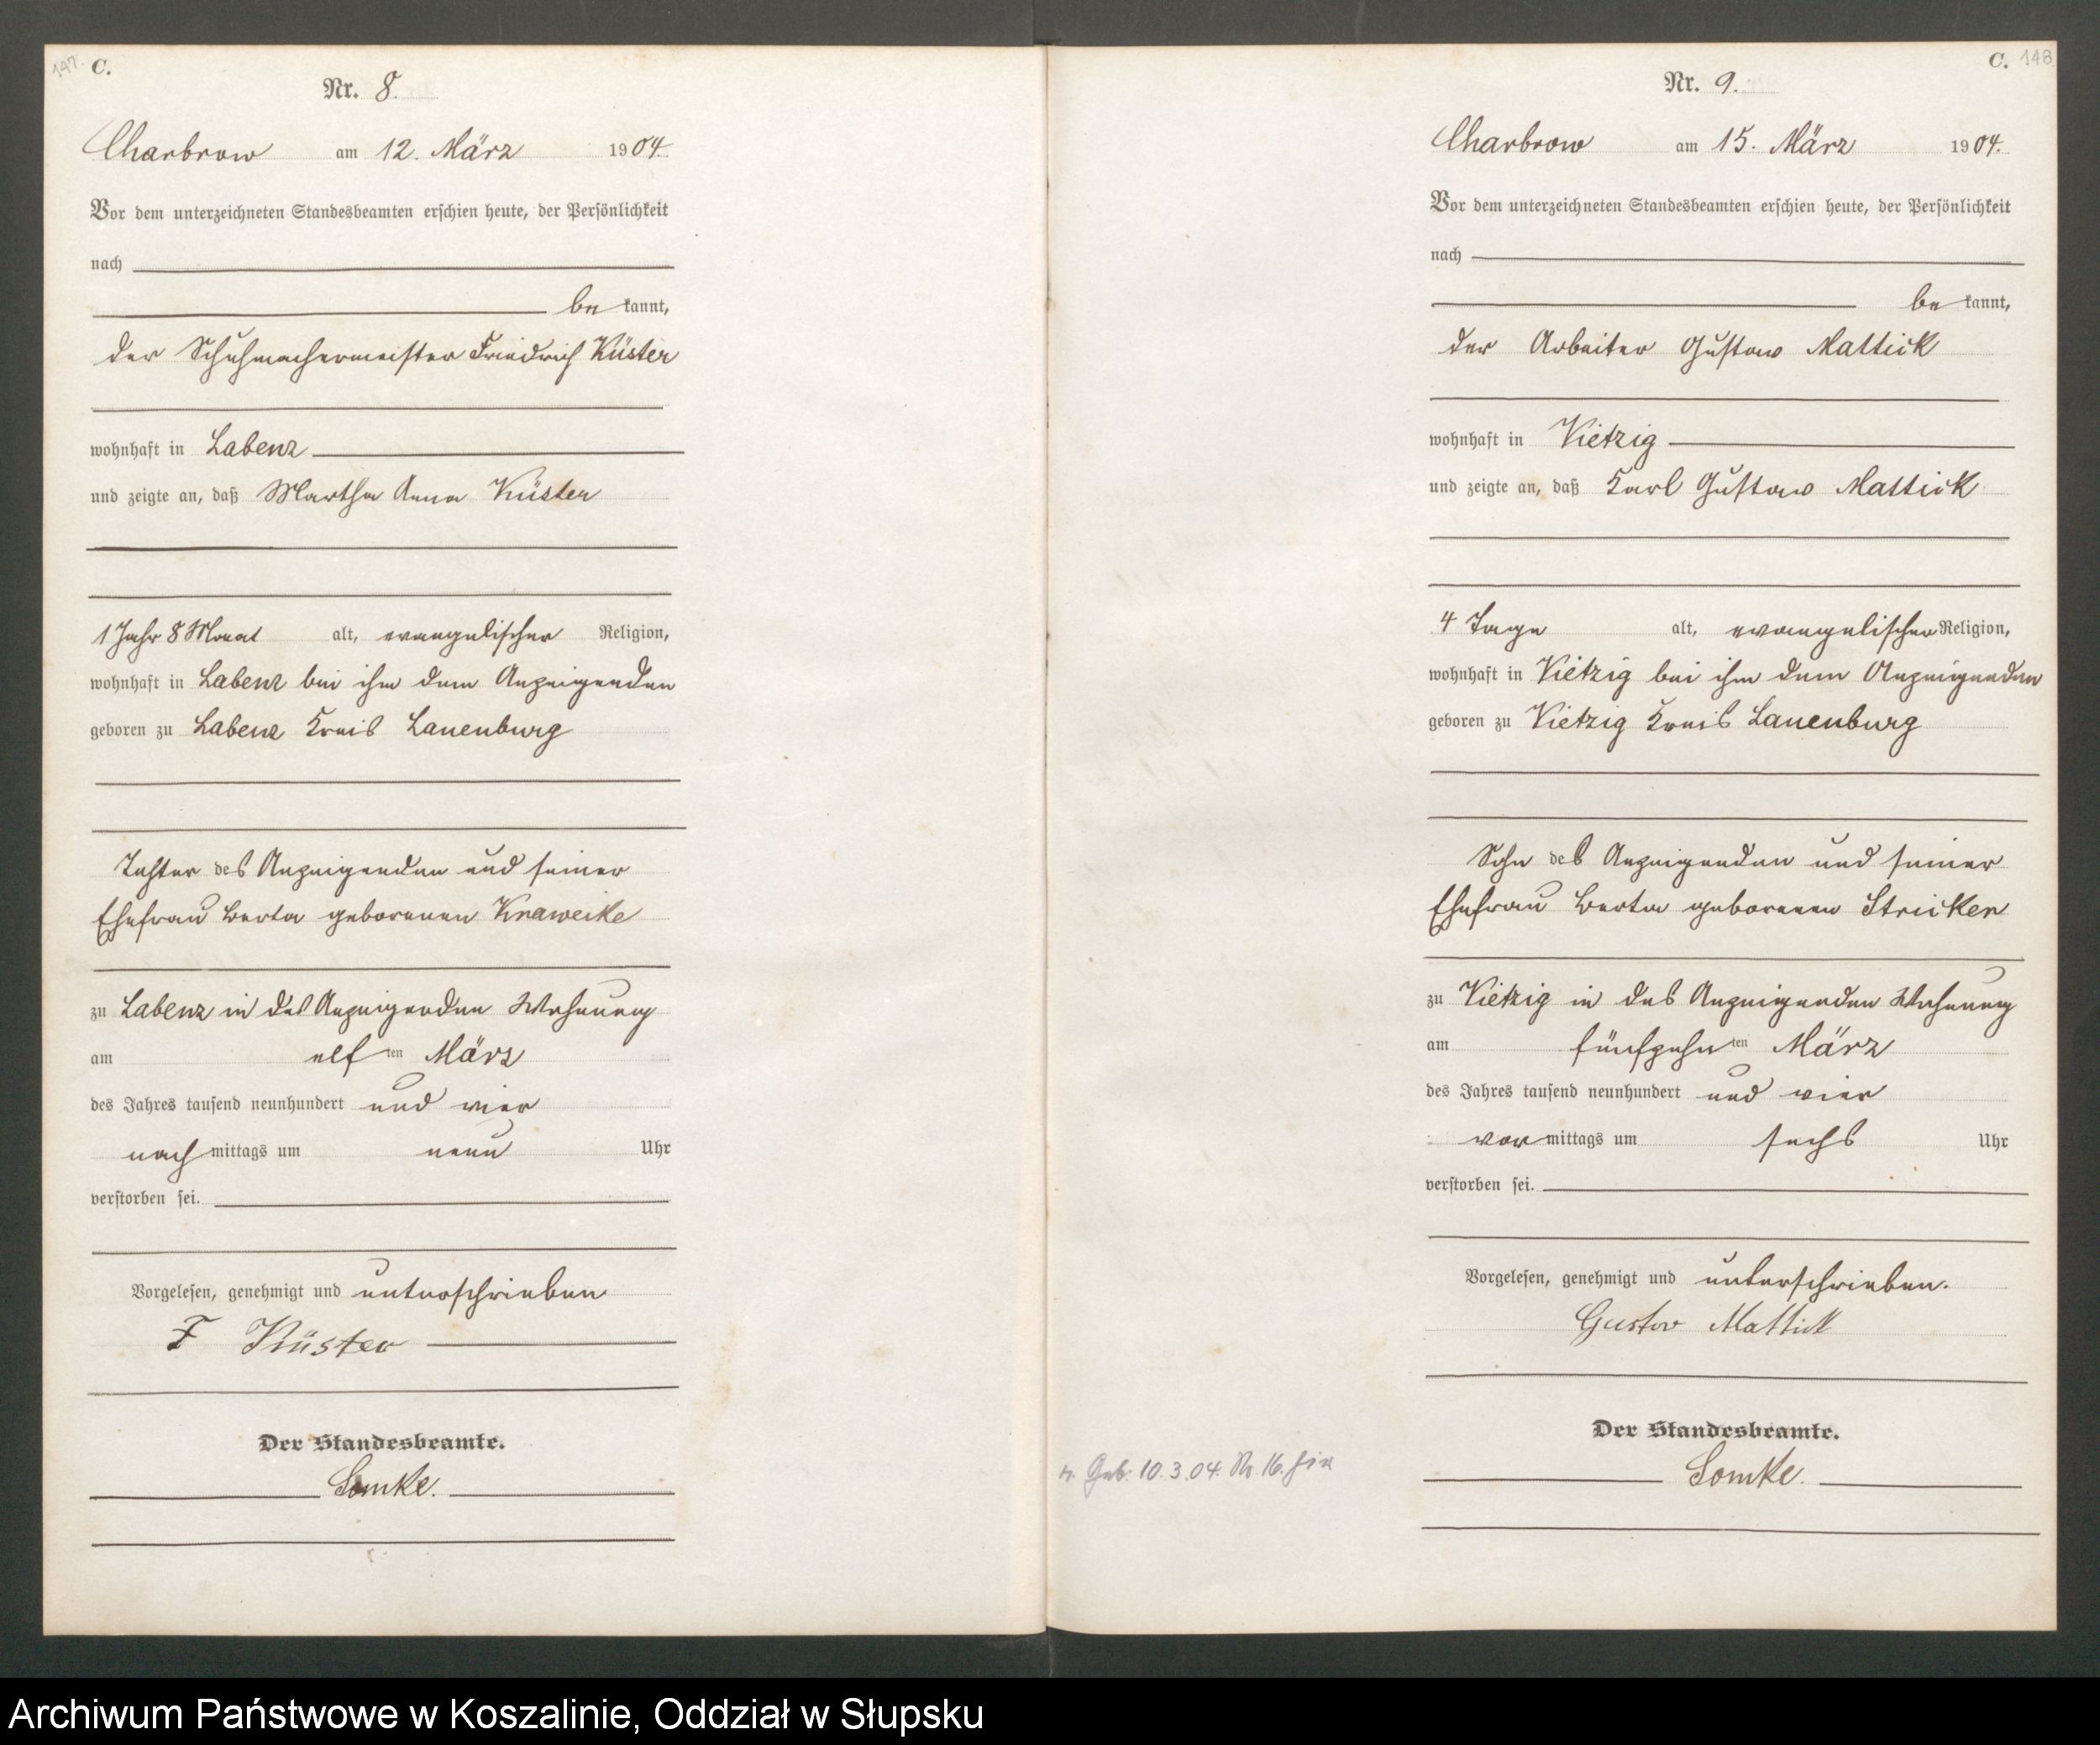 147. C.
Nr. 8.
Charbrow am 12. März 1904.
Vor dem unterzeichneten Standesbeamten erschien heute, der Persönlichkeit
nach
be kannt,
der Schuhmachermeister Friedrich Küster
wohnhaft in Labenz
und zeigte an, daß Martha Anna Küster
1 Jahr 8 Monat alt, evangelischer Religion,
wohnhaft in Labenz bei ihm dem Anzeigenden
geboren zu Labenz Kreis Lauenburg
Tochter des Anzeigenden und seiner
Ehefrau Berta geborenen Knaweike
zu Labenz in des Anzeigenden Wohnung
am elf ten März
des Jahres tausend neunhundert und vier
nach mittags um neun Uhr
verstorben sei.
Vorgelesen, genehmigt und unterschrieben
F Küster
Der Standesbeamte.
Lomke.
C. 148
Nr. 9.
Charbrow am 15. März 1904.
Vor dem unterzeichneten Standesbeamten erschien heute, der Persönlichkeit
nach
be kannt,
der Arbeiter Gustaw Mattick
wohnhaft in Vietzig
und zeigte an, daß Karl Gustaw Mattick
4 Tage alt, evangelischer Religion,
wohnhaft in Vietzig bei ihm dem Anzeigenden
geboren zu Vietzig Kreis Lauenburg
Sohn des Anzeigenden und seiner
Ehefrau Berta geborenen Stricker
zu Vietzig in des Anzeigenden Wohnung
am fünfzehn ten März
des Jahres tausend neunhundert und vier
vor mittags um sechs Uhr
verstorben sei.
Vorgelesen, genehmigt und unterschrieben.
Gustav Mattick
Der Standesbeamte.
Lomke.
Geb. 10.3.04. Nr. 16. hier
Archiwum Państwowe w Koszalinie, Oddział w Słupsku